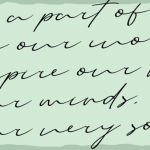 a part of
our wo
pire our
ur minds.
ur very so